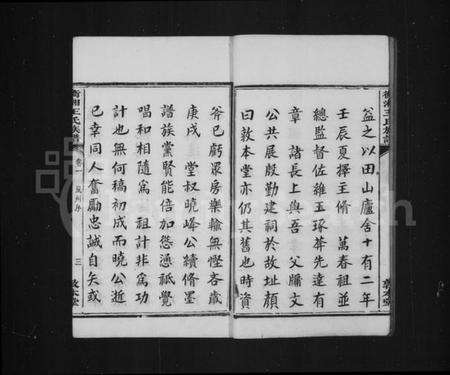 益之以田山廬舍十有二年
壬辰夏擇主脩 萬春祖並
總監督佐雜玉琢莽先達有
章諸長上與吾 父牖文
公共展殷勤建祠於故址顏
曰敦本堂亦仍其舊也時資
斧已虧眾房樂輸無慳吝歲
庚戌 堂叔曉峰公續脩墨
譜族黨賢能倍加慫憑祇覺
唱和相隨為 祖計非為功
計也無何稿初成而曉公逝
已幸同人奮勵忠誠自矢或
衡湘王氏族譜
卷一
三
敦本堂